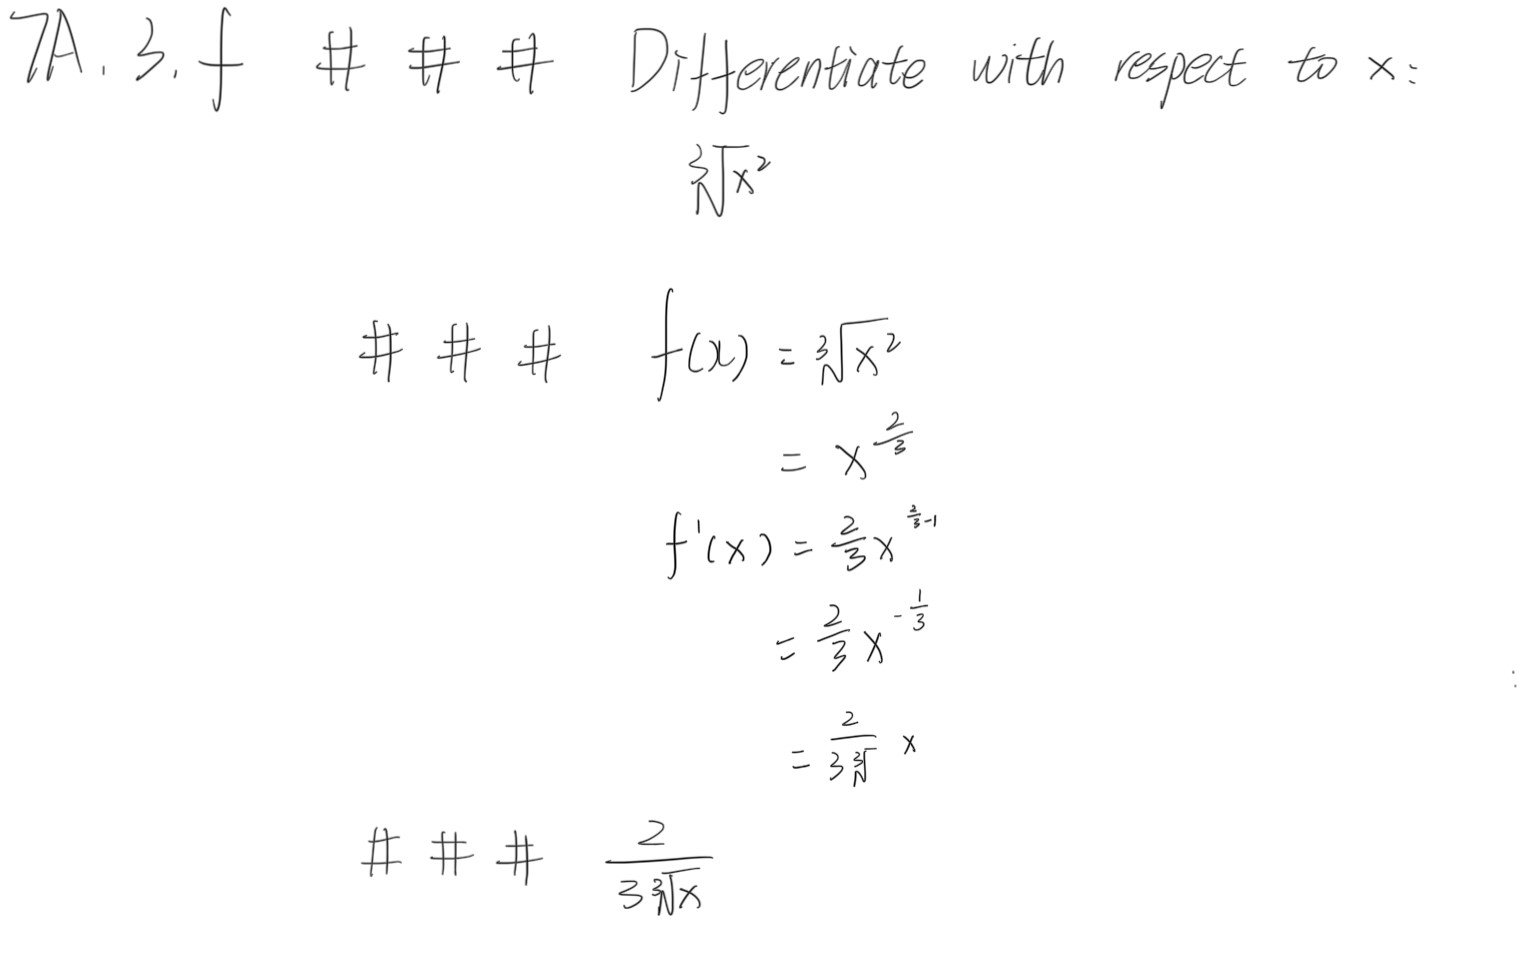 7A.3.f # # # Differentiate with respect to x:
∛x²
# # # f(x) = ∛x²
= x^(2/3)
f'(x) = 2/3 x^(2/3-1)
= 2/3 x^(-1/3)
= 2/(3∛) x
# # # 2/(3∛x)